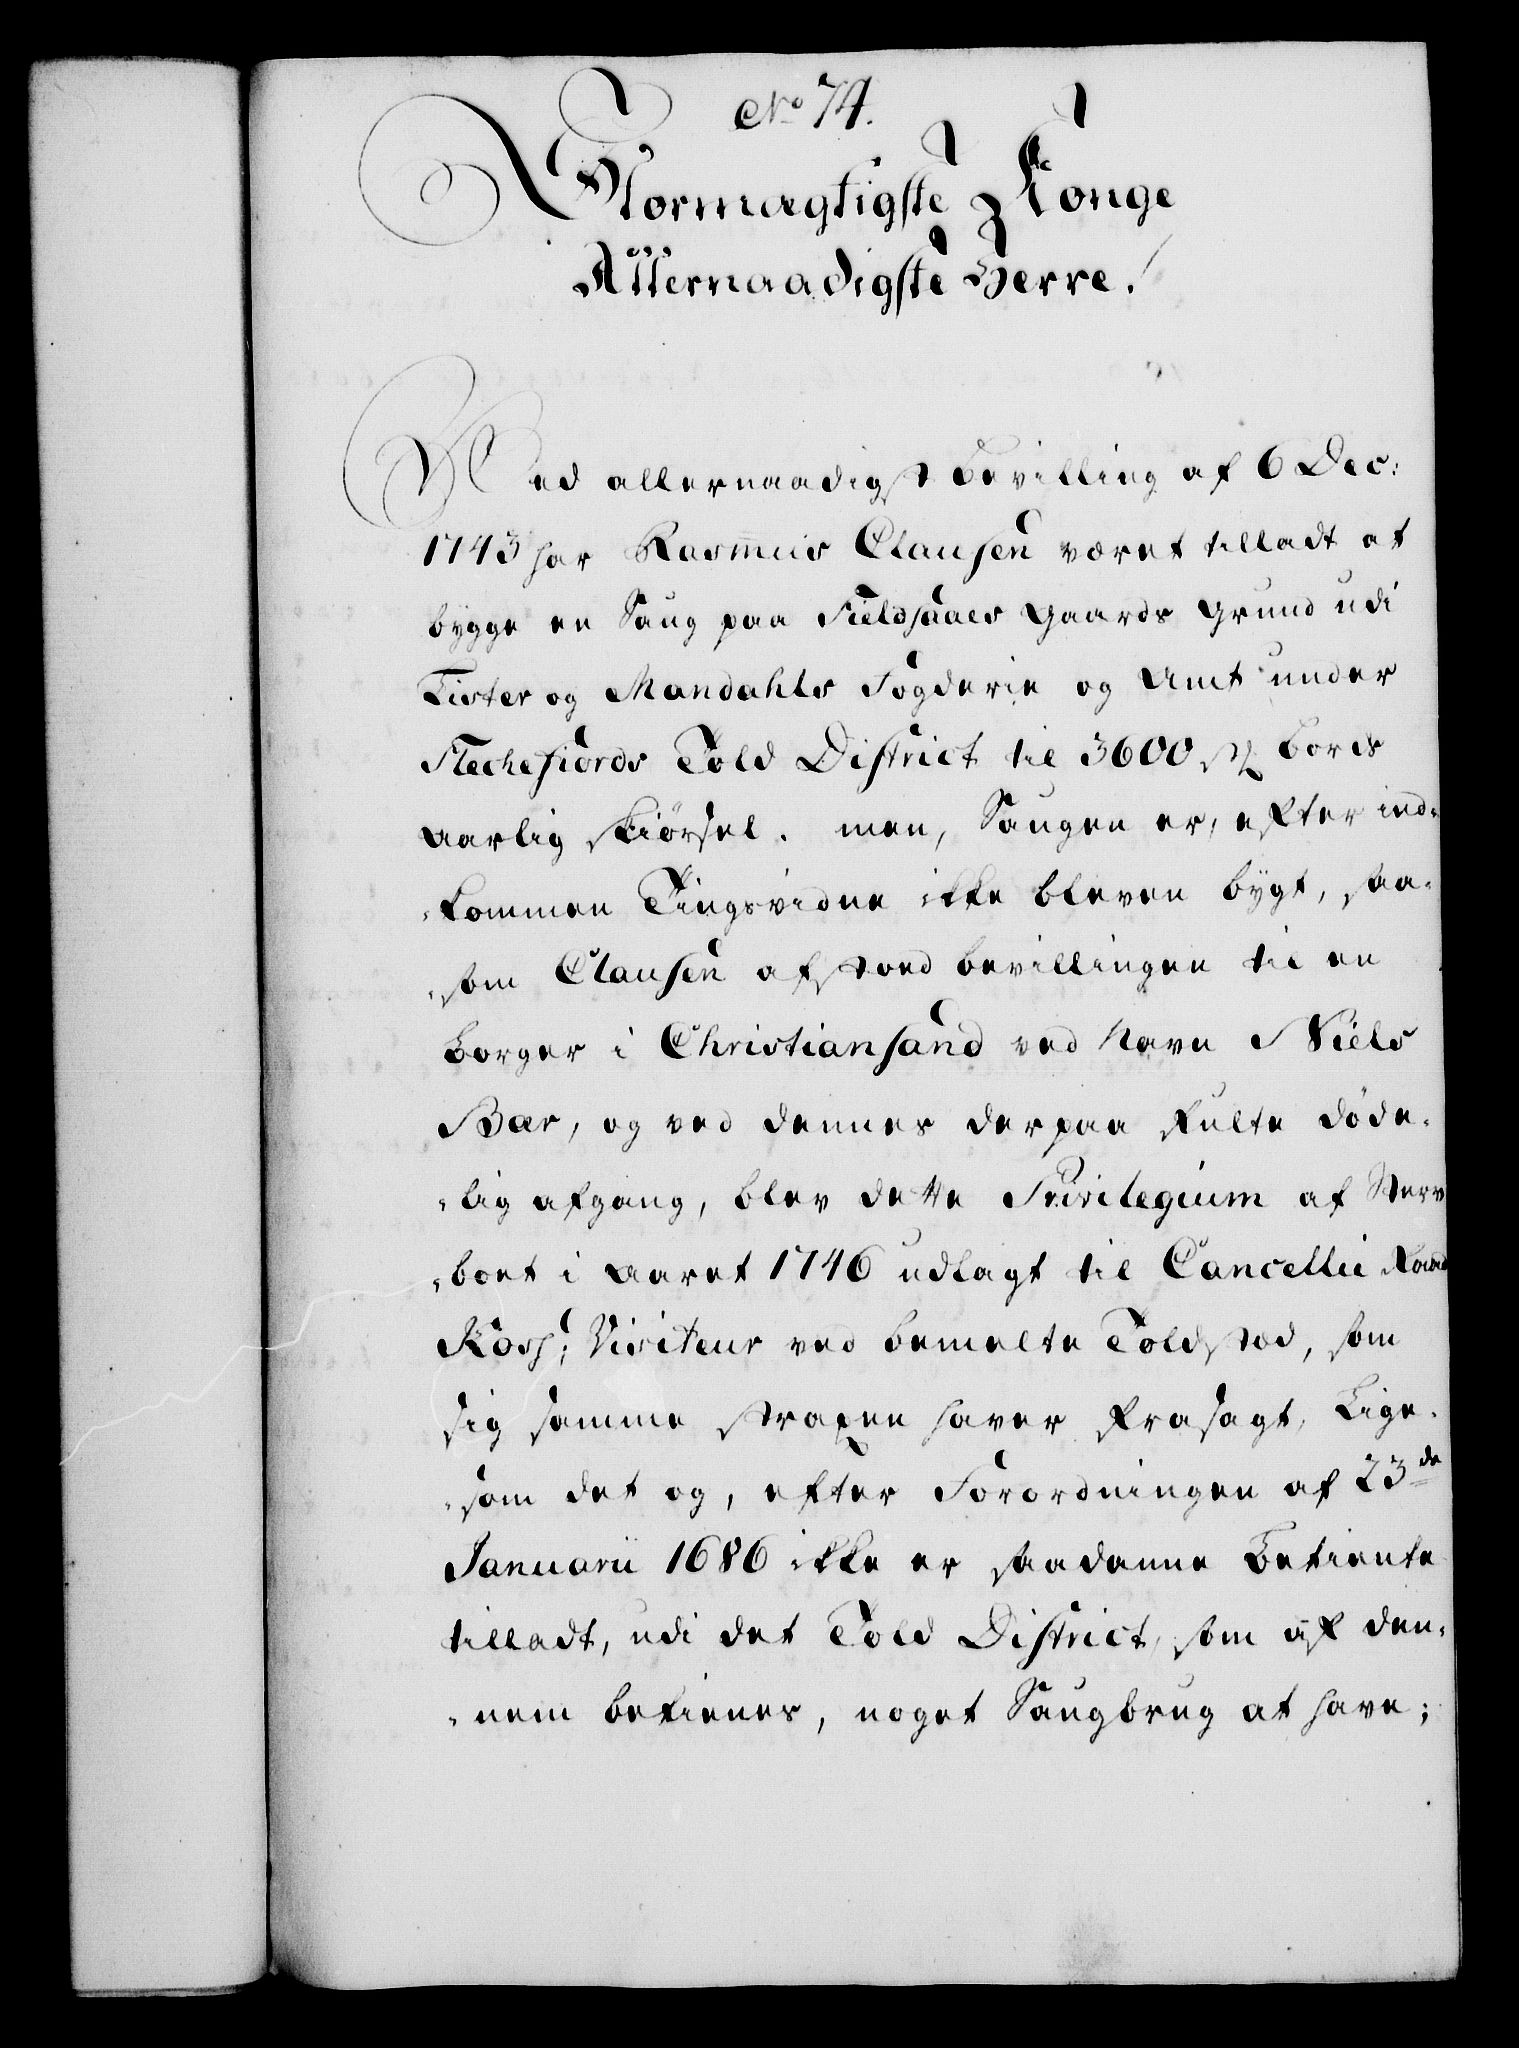 No 74.
Stormægtigste Konge
Allernaadigste Herre!
Ved allernaadigst bevilling af 6 Dec:
1743 har Rasmus Clausen været tilladt at
bygge en Saug paa Fieldsaaes Gaards Grund udi
Lister og Mandahls Fogderie og Amt under
Flechefiords Told District til 3600 st bords
aarlig Skiørsel. men, Saugen er, efter ind-
-kommen Tingsvidne ikke bleven bygt, saa-
-som Clausen afstoed bevillingen til en
Borger i Christiansand ved Navn Niels
Bær, og ved dennes derpaa fulte døde-
-lig afgang, blev dette Privilegium af Sterv
-boet i Aaret 1746 udlagt til Cancellie Raad
Visiteur ved bemelte Toldsted, som
sig samme straxen haver frasagt, Lige-
-som det og, efter Forordningen af 23de
Januarii 1686 ikke er saadanne Betiente
tilladt, udi det Told District, som af den-
-nem betienes, noget Saugbrug at have;